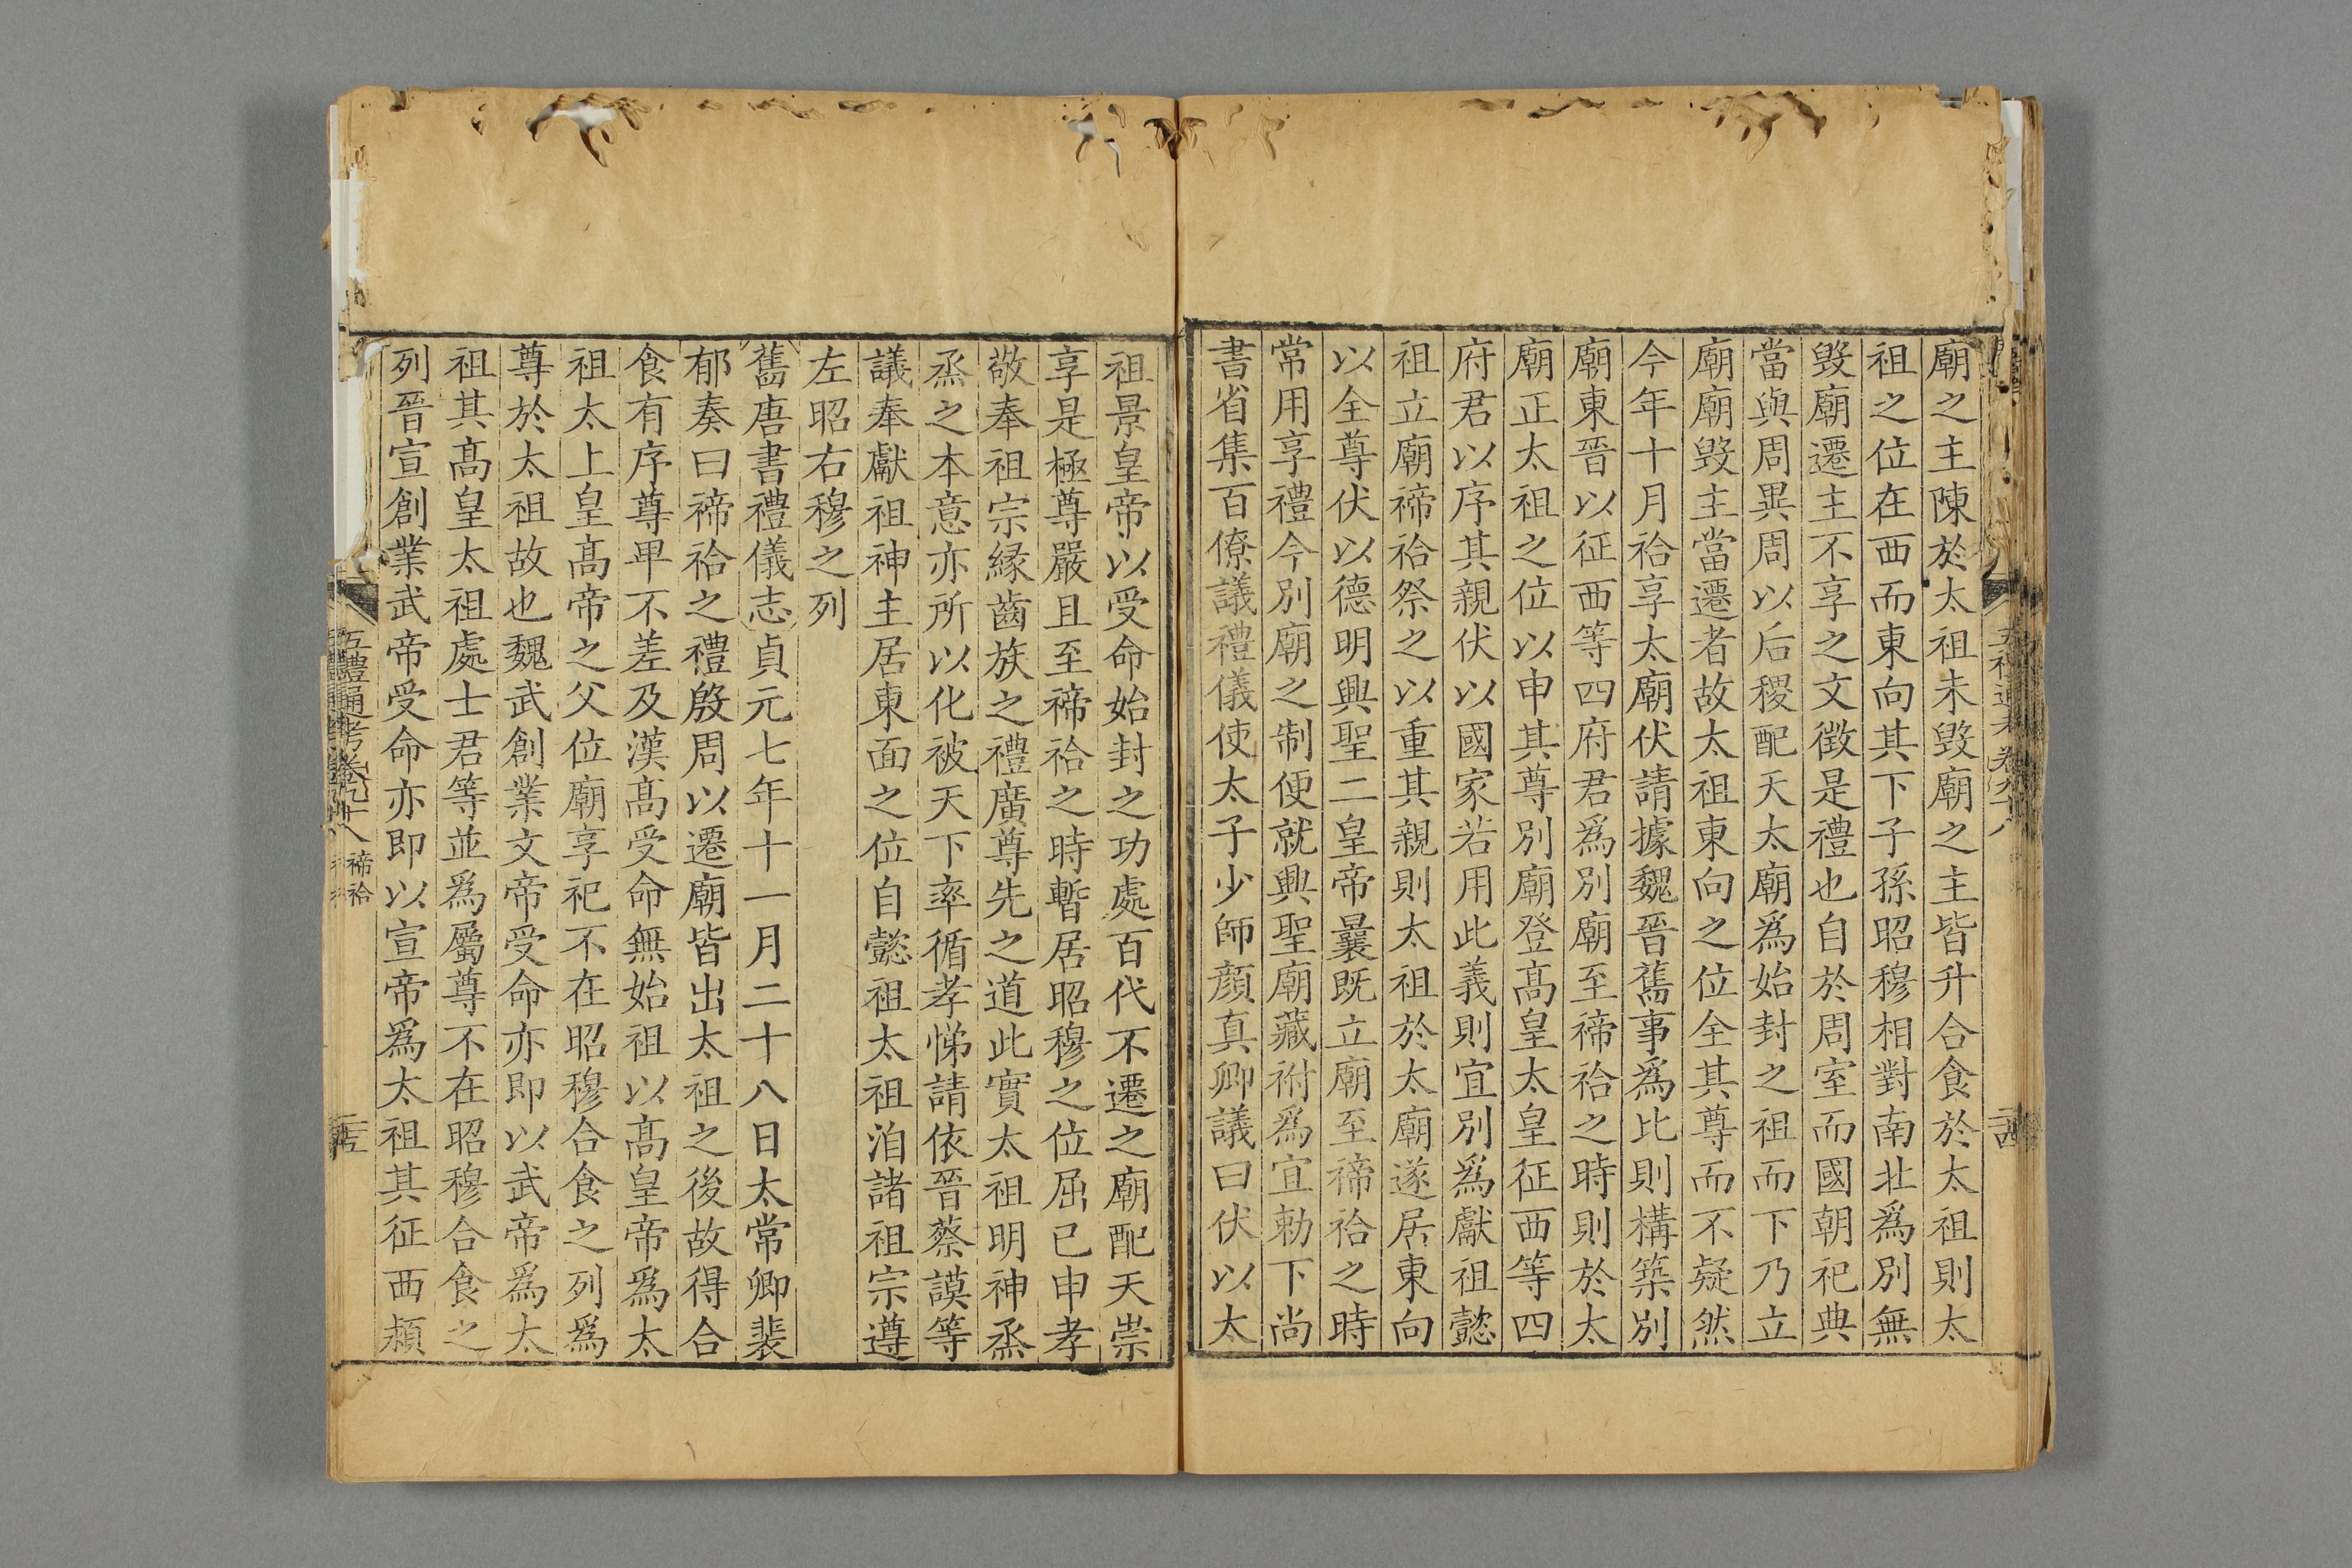 廟之主陳於太祖未毀廟之主皆升合食於太祖則太
祖之位在西而東向其下子孫昭穆相對南北爲別無
毀廟遷主不享之文徴是禮也自於周室而國朝祀典
當與周異周以后稷配天太廟爲始封之祖而下乃立
廟廟毀主當遷者故太祖東向之位全其尊而不疑然
今年十月祫享太廟伏請據魏晉舊事爲比則構築別
廟東晉以征西等四府君爲別廟至禘祫之時則於太
廟正太祖之位以申其尊別廟登髙皇太皇征西等四
府君以序其親伏以國家若用此義則宜別爲獻祖懿
祖立廟禘祫祭之以重其親則太祖於太廟遂居東向
以全尊伏以德明興聖二皇帝曩既立廟至禘祫之時
常用享禮今別廟之制便就興聖廟藏祔爲宜勅下尚
書省集百僚議禮儀使太子少師顔真卿議曰伏以太
祖景皇帝以受命始封之功處百代不遷之廟配天崇
享是極尊嚴且至禘祫之時暫居昭穆之位屈已申孝
敬奉祖宗縁齒族之禮廣尊先之道此實太祖明神烝
烝之本意亦所以化被天下率循孝悌請依晉蔡謨等
議奉獻祖神主居東面之位自懿祖太祖洎諸祖宗遵
左昭右穆之列
舊唐書禮儀志貞元七年十一月二十八日太常卿裴
郁奏曰禘祫之禮殷周以遷廟皆出太祖之後故得合
食有序尊卑不差及漢髙受命無始祖以髙皇帝爲太
祖太上皇髙帝之父位廟享祀不在昭穆合食之列爲
尊於太祖故也魏武創業文帝受命亦即以武帝爲太
祖其髙皇太祖處士君等並爲屬尊不在昭穆合食之
列晉宣創業武帝受命亦即以宣帝爲太祖其征西潁
五禮通考卷九十八 禘祫